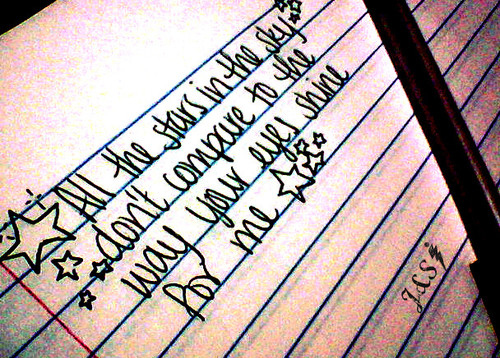 All the stars in the sky
don't compare to the
way your eyes shine
for me